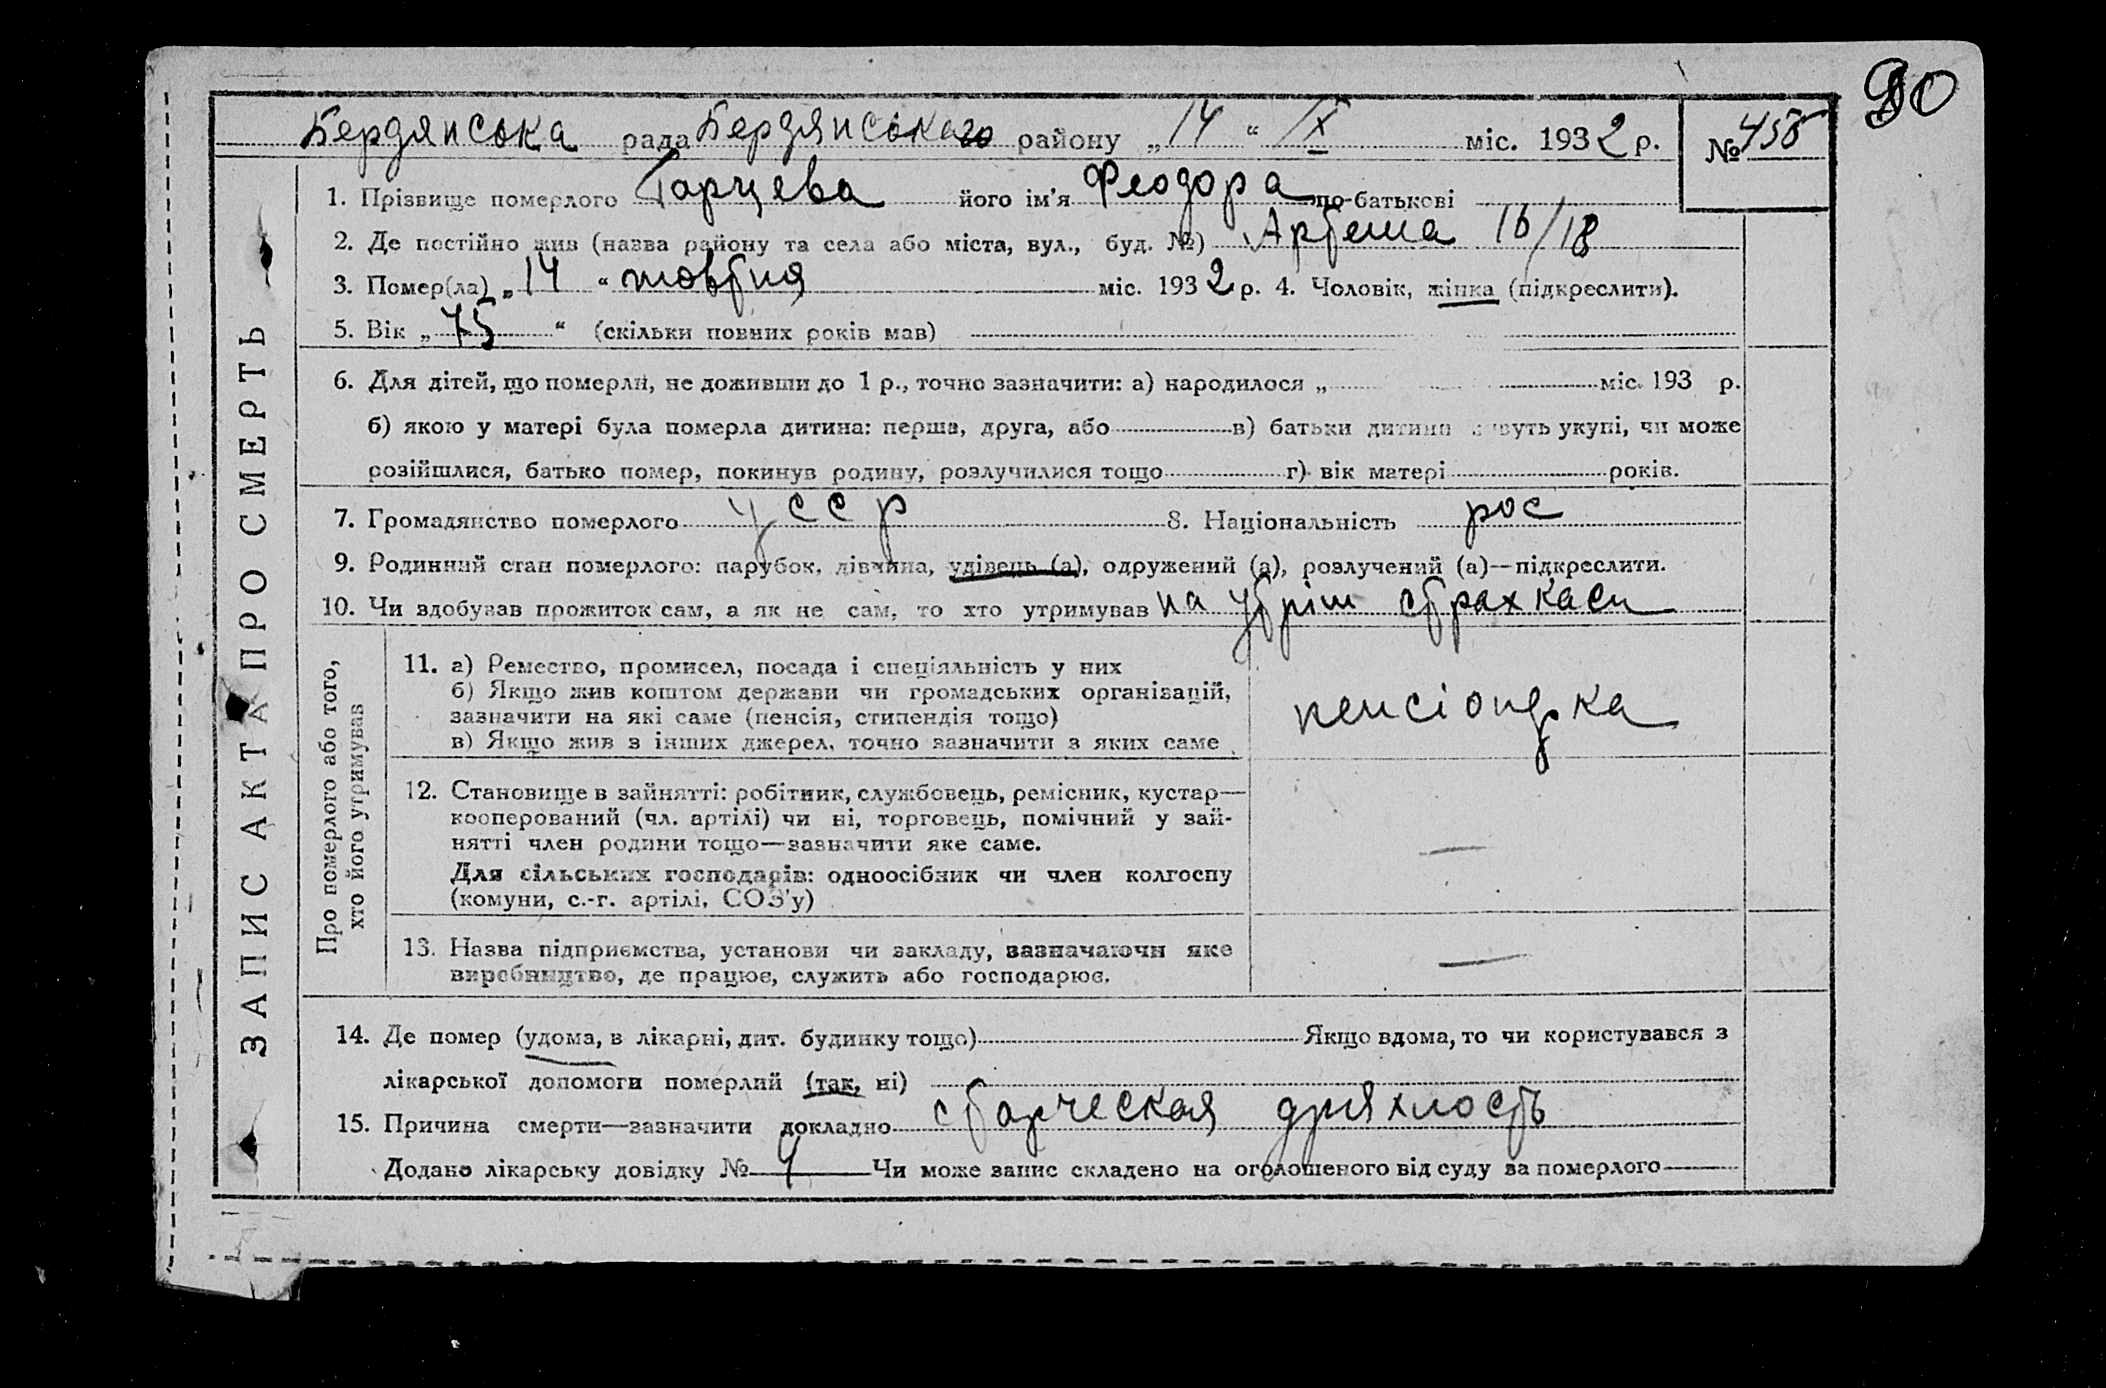 90
Бердянська рада Бердянського району „14“ IX міс. 1932 р. № 458
1. Прізвище померлого Гарцева його ім'я Феодора по-батькові
2. Де постійно жив (назва району та села або міста, вул., буд. №) Артема 16/18
3. Помер(ла) „14“ жовтня міс. 1932 р. 4. Чоловік, жінка (підкреслити).
5. Вік „75“ (скільки повних років мав)
6. Для дітей, що померли, не доживши до 1 р., точно зазначити: а) народилося „ міс. 193 р.
б) якою у матері була померла дитина: перша, друга, або в) батьки дитини живуть укупі, чи може
розійшлися, батько помер, покинув родину, розлучилися тощо г) вік матері років.
7. Громадянство померлого УССР 8. Національність рос
9. Родинний стан померлого: парубок, дівчина, удівець (а), одружений (а), розлучений (а)—підкреслити.
10. Чи здобував прожиток сам, а як не сам, то хто утримував на утрім страхкаси
ЗАПИС АКТА ПРО СМЕРТЬ
Про померлого або того,
хто його утримував
11. а) Ремество, промисел, посада і спеціяльність у них
б) Якщо жив коштом держави чи громадських організацій,
зазначити на які саме (пенсія, стипендія тощо)
в) Якщо жив з інших джерел, точно зазначити з яких саме
пенсіонрка
12. Становище в зайнятті: робітник, службовець, ремісник, кустар—
кооперований (чл. артілі) чи ні, торговець, помічний у зай-
нятті член родини тощо—зазначити яке саме. —
Для сільських господарів: одноосібник чи член колгоспу
(комуни, с.-г. артілі, СОЗ'у)
13. Назва підприємства, установи чи закладу, зазначаючи яке
виробництво, де працює, служить або господарює. —
14. Де помер (удома, в лікарні, дит. будинку тощо) Якщо вдома, то чи користувався з
лікарської допомоги померлий (так, ні)
15. Причина смерти—зазначити докладно старческая дряхлость
Додано лікарську довідку № 4 Чи може запис складено на оголошеного від суду за померлого